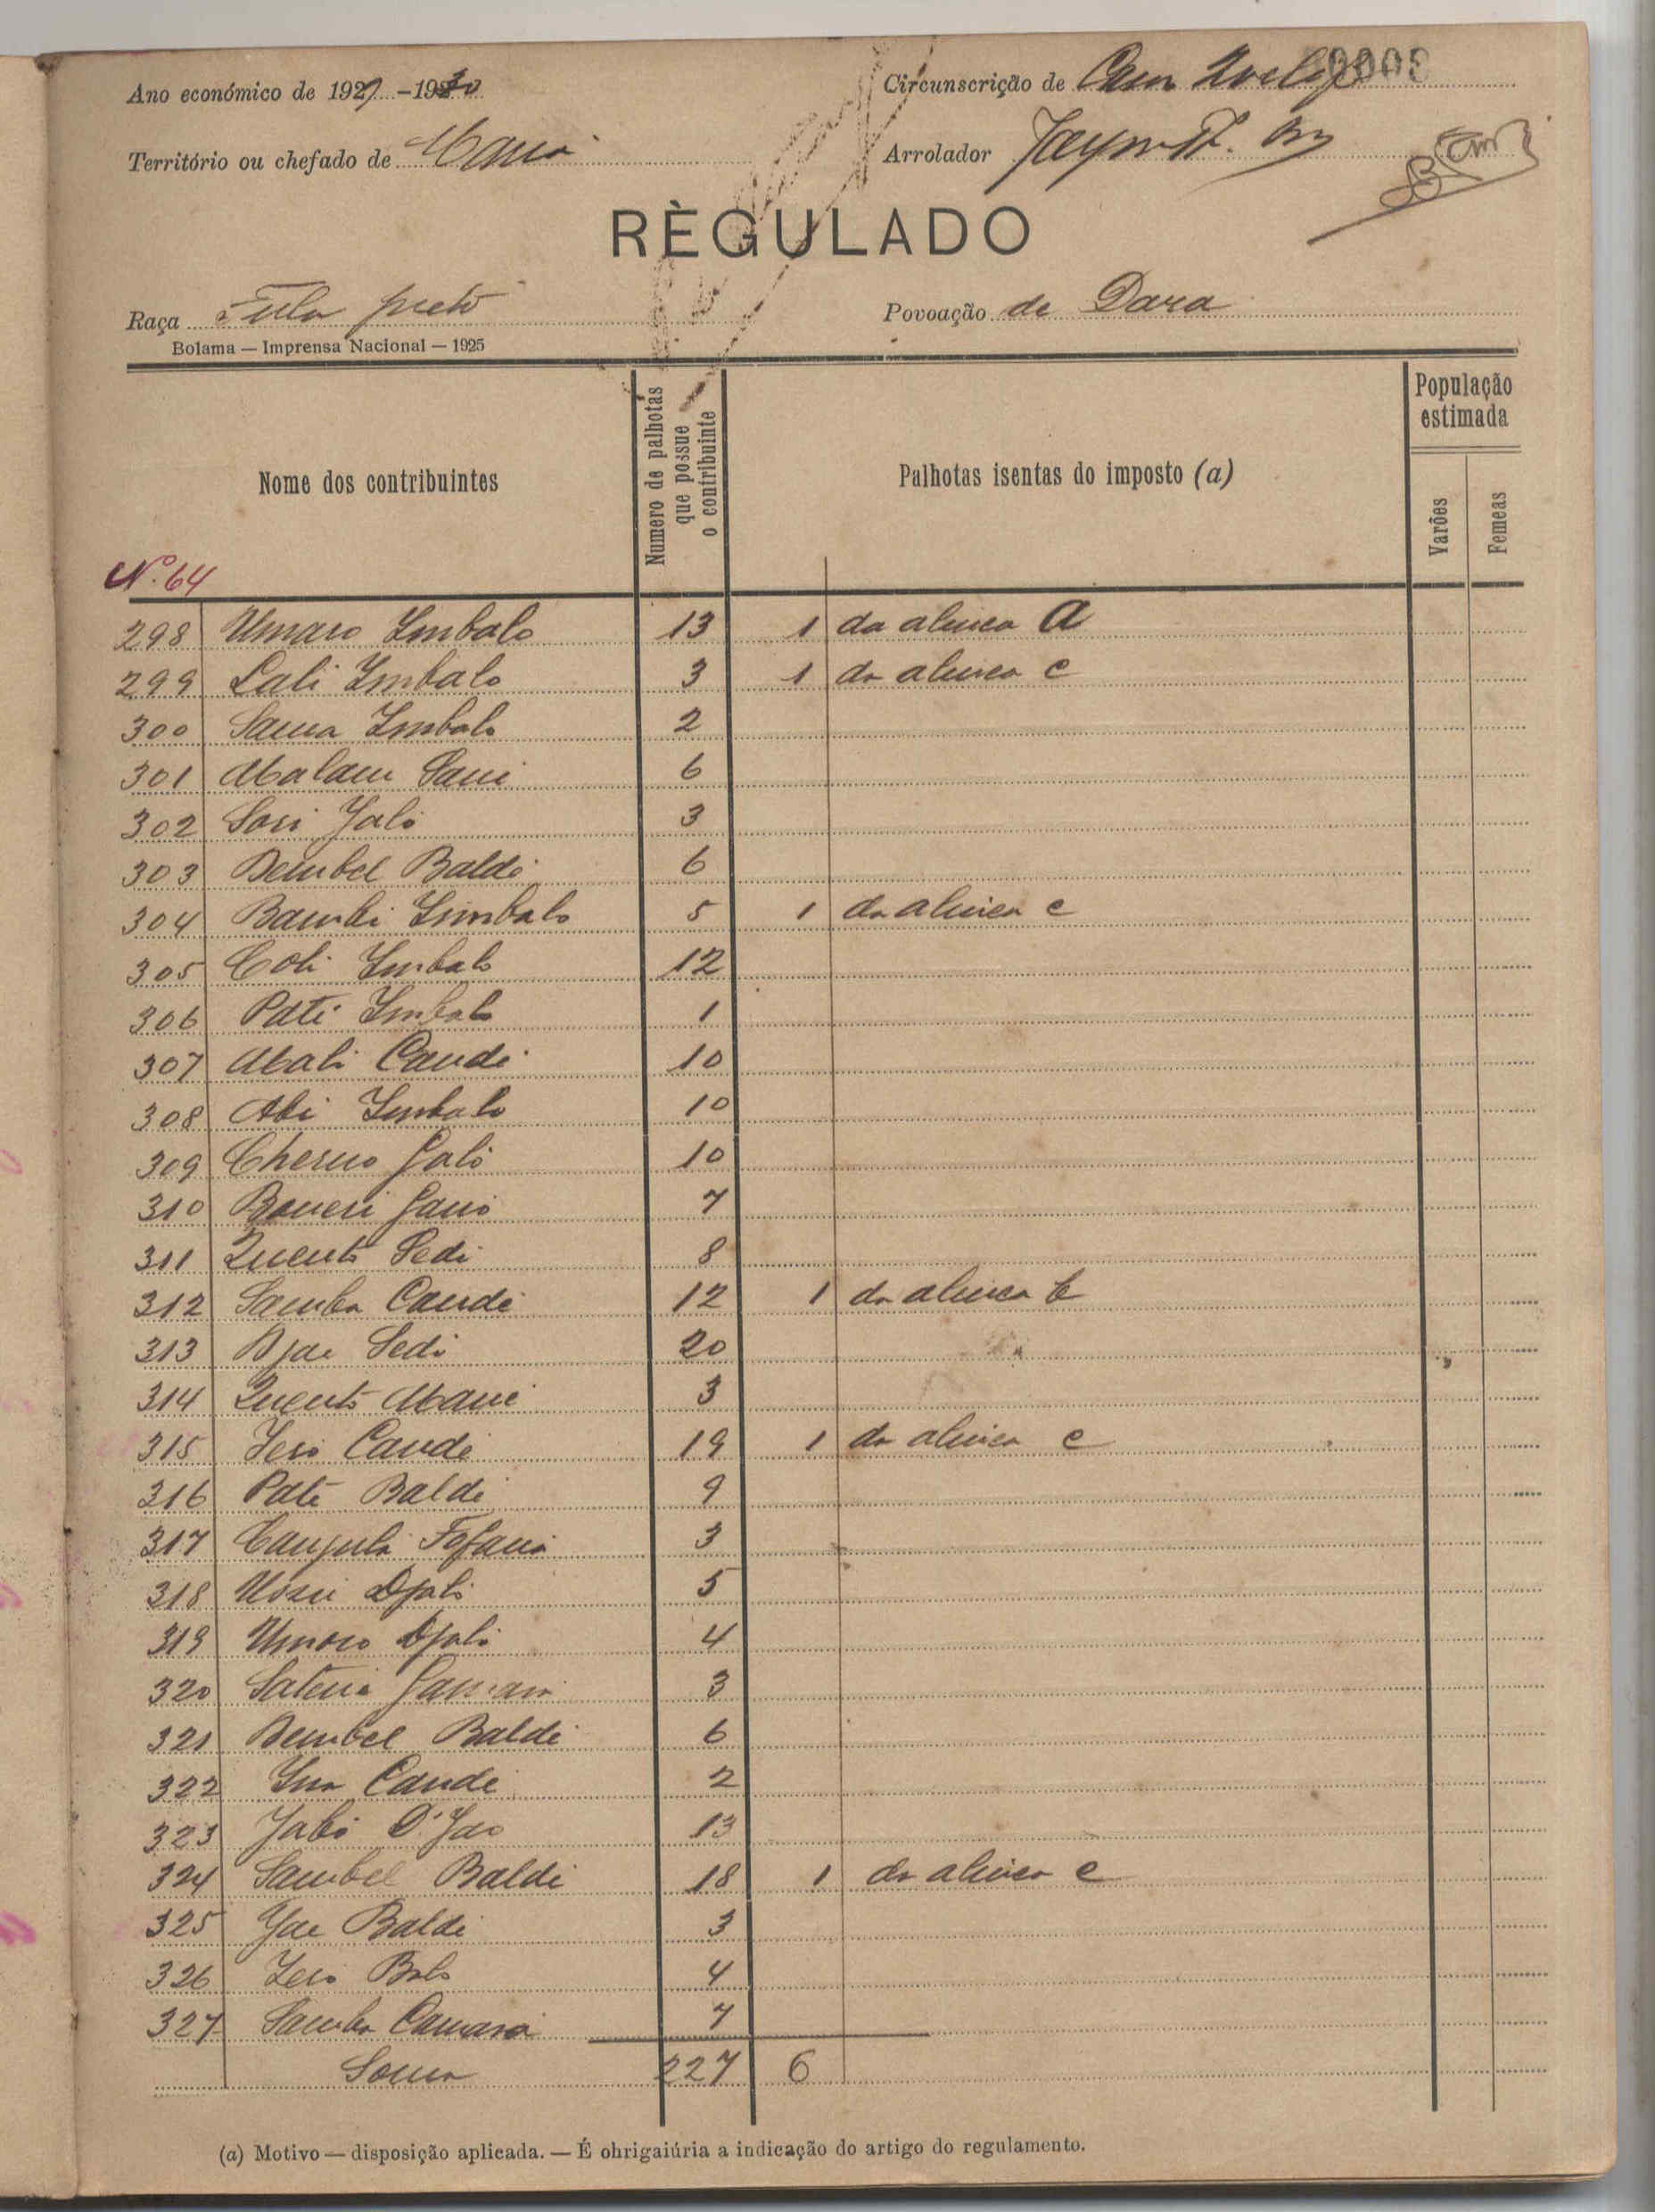 Ano económico de 1929-1930
Circunscrição de
Território ou chefado de
Arrolador
RÈGULADO
Raça Fula preto
Povoação de Dara
Bolama — Imprensa Nacional — 1925
Nome dos contribuintes
Numero de palhotas que possue o contribuinte
Palhotas isentas do imposto (a)
População estimada
Varões
Femeas
Nº 64
298 Umaro Embalo 13 1 da alinea A
299 Lali Embalo 3 1 da alinea c
300 Embalo 2
301 Malam Sani 6
302 Sori Jaló 3
303 Dembel Baldé 6
304 Bambi Embalo 5 1 da alinea c
305 Coli Embalo 12
306 Paté Embalo 1
307 Mali Candé 10
308 Embalo 10
309 Cherno Jaló 10
310 7
311 Quecuto Sedi 8
312 Samba Candé 12 1 da alinea b
313 Djae Sedi 20
314 Quecuto Mané 3
315 Candé 19 1 da alinea c
316 Paté Baldé 9
317 Fofana 3
318 Djaló 5
319 Umaro Djaló 4
320 3
321 Dembel Baldé 6
322 Candé 2
323 13
324 Sambel Baldé 18 1 da alinea c
325 Baldé 3
326 4
327 Samba Camará 7
Soma 227 6
(a) Motivo — disposição aplicada. — É ohrigaiúria a indicação do artigo do regulamento.